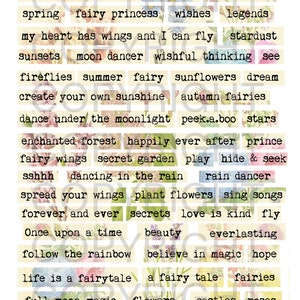 spring fairy princess wishes legends
my heart has wings and I can fly stardust
sunsets moon dancer wishful thinking see
fireflies summer fairy sunflowers dream
create your own sunshine autumn fairies
dance under the moonlight peek.a.boo stars
enchanted forest happily ever after prince
fairy wings secret garden play hide & seek
sshhh dancing in the rain rain dancer
spread your wings plant flowers sing songs
forever and ever secrets love is kind fly
Once upon a time beauty everlasting
follow the rainbow believe in magic hope
life is a fairytale a fairy tale fairies
full moon magic flowers castles roses
COPYRIGHT